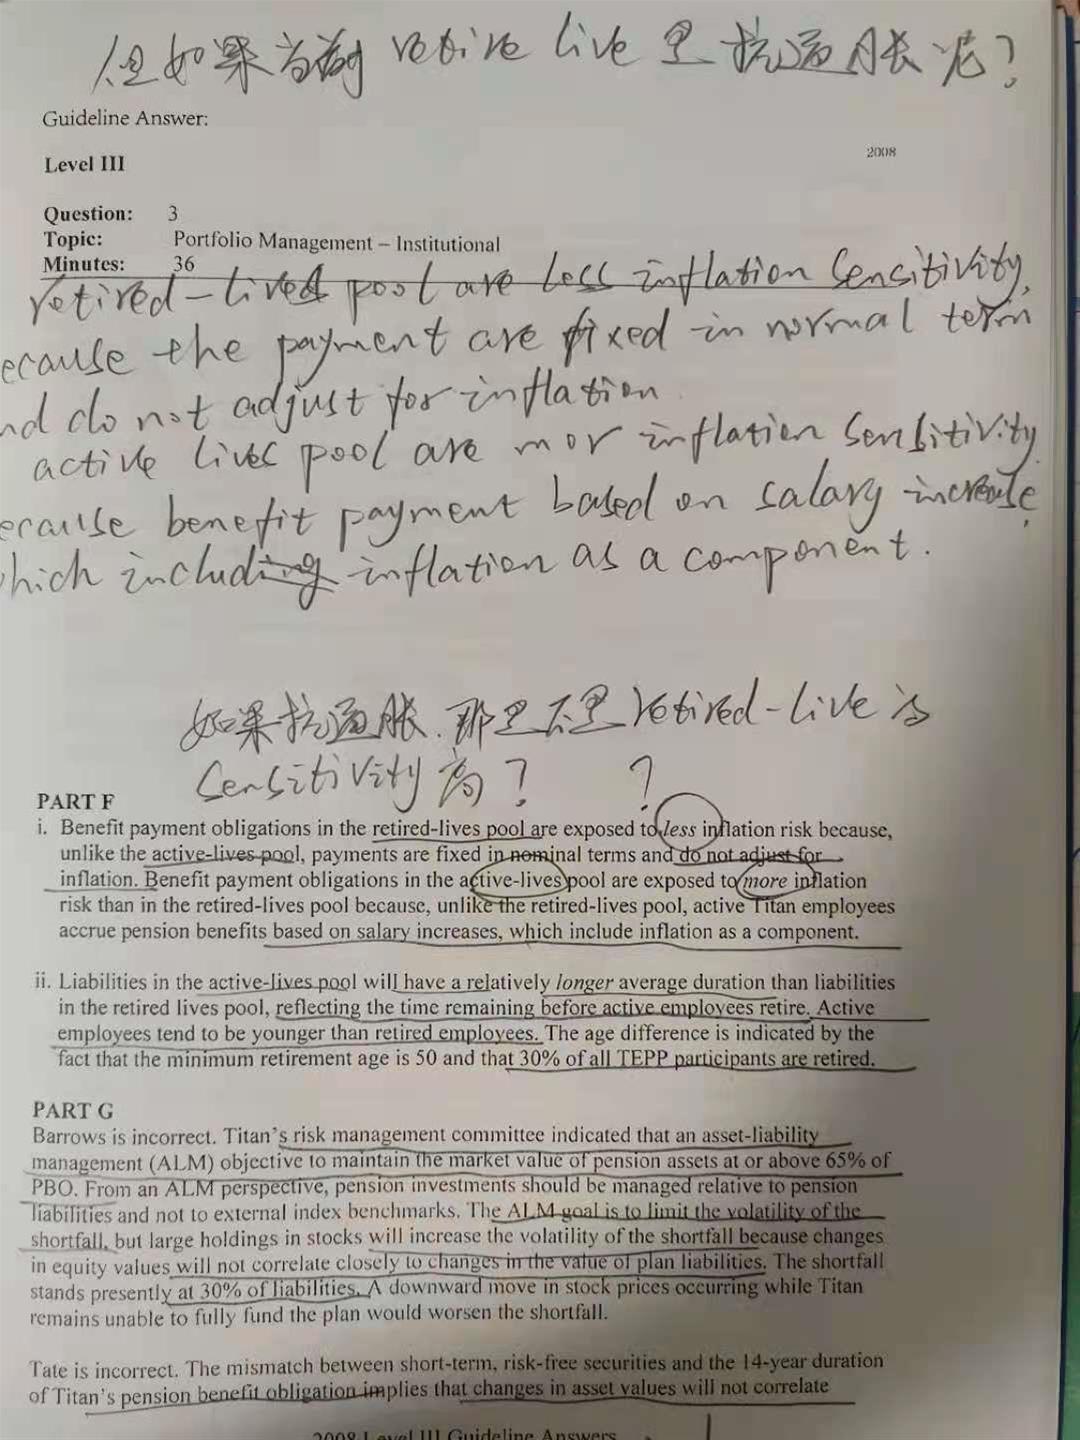 但如果当前 retire live 里抗通胀呢？
Guideline Answer:
Level III
2008
Question: 3
Topic: Portfolio Management – Institutional
Minutes: 36
retired-lived pool are less inflation sensitivity,
ecause the payment are fixed in normal term
nd do not adjust for inflation
active lives pool are mor inflation sensitivity.
ecause benefit payment based on salary increase,
hich including inflation as a component.
如果抗通胀, 那里不里 retired-live 的
sensitivity 高? ?
PART F
i. Benefit payment obligations in the retired-lives pool are exposed to less inflation risk because,
unlike the active-lives pool, payments are fixed in nominal terms and do not adjust for
inflation. Benefit payment obligations in the active-lives pool are exposed to more inflation
risk than in the retired-lives pool because, unlike the retired-lives pool, active Titan employees
accrue pension benefits based on salary increases, which include inflation as a component.
ii. Liabilities in the active-lives pool will have a relatively longer average duration than liabilities
in the retired lives pool, reflecting the time remaining before active employees retire. Active
employees tend to be younger than retired employees. The age difference is indicated by the
fact that the minimum retirement age is 50 and that 30% of all TEPP participants are retired.
PART G
Barrows is incorrect. Titan's risk management committee indicated that an asset-liability
management (ALM) objective to maintain the market value of pension assets at or above 65% of
PBO. From an ALM perspective, pension investments should be managed relative to pension
liabilities and not to external index benchmarks. The ALM goal is to limit the volatility of the
shortfall, but large holdings in stocks will increase the volatility of the shortfall because changes
in equity values will not correlate closely to changes in the value of plan liabilities. The shortfall
stands presently at 30% of liabilities. A downward move in stock prices occurring while Titan
remains unable to fully fund the plan would worsen the shortfall.
Tate is incorrect. The mismatch between short-term, risk-free securities and the 14-year duration
of Titan's pension benefit obligation implies that changes in asset values will not correlate
2008 Level III Guideline Answers